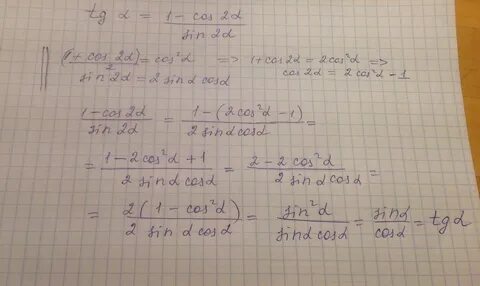 tg α = (1 - cos 2α)/(sin 2α)
(1 + cos 2α)/2 = cos²α => 1 + cos 2α = 2cos²α =>
sin 2α = 2 sin α cos α cos 2α = 2 cos²α - 1
(1 - cos 2α)/(sin 2α) = (1 - (2 cos²α - 1))/(2 sin α cos α) =
= (1 - 2 cos²α + 1)/(2 sin α cos α) = (2 - 2 cos²α)/(2 sin α cos α) =
= (2(1 - cos²α))/(2 sin α cos α) = (sin²α)/(sin α cos α) = (sin α)/(cos α) = tg α